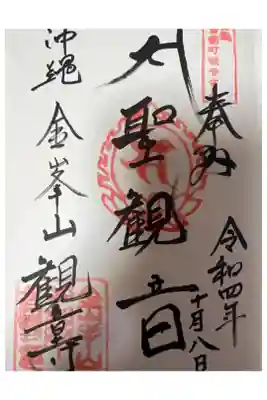 奉拝
令和四年
十月八日
大聖観音
沖縄 金峯山
観音寺